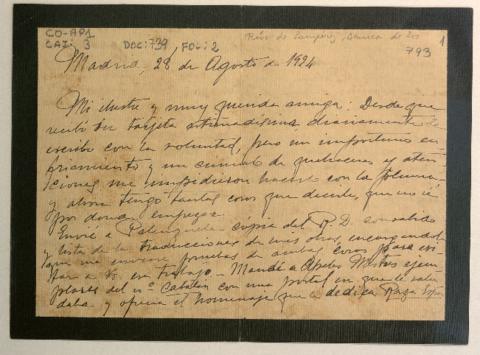 CO-AP1
CAJ: 3
DOC: 739
FOL: 2
Ríos de Lampérez, Blanca de los
793
1
Madrid, 28 de Agosto de 1924
Mi ilustre y muy querida amiga: Desde que
recibí su tarjeta diariamente le
escribo con la voluntad, pero un importuno en
friamiento y un cúmulo de quehaceres y aten
ciones me impidieron hacerlo con la pluma
y ahora tengo tantas cosas que decirle, que no sé
por donde empezar.
Envié a copia del R. D. consabido
y lista de las traducciones de mis obras
que me envíe pruebas de ambas cosas para
a V. en trabajo. Mandé a Mestres ejem
plares del nº Catalán con una postal en que le
daba y ofrecía el homenaje que le dedica Raza Espa